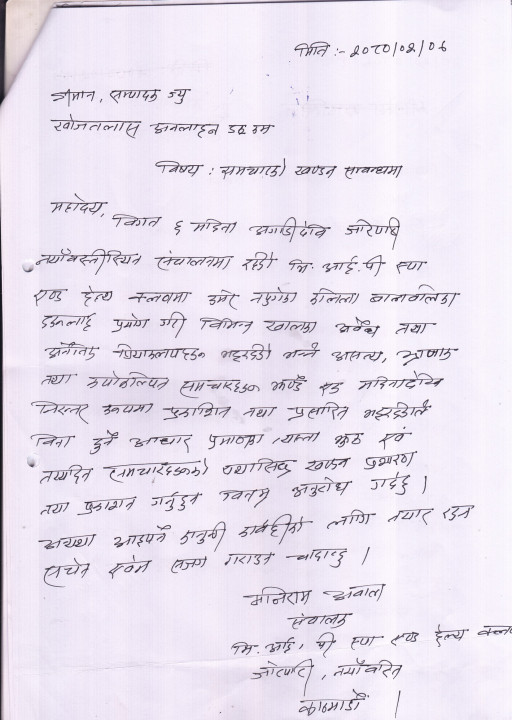 मिति :- २०८०/०२/०६
श्रीमान, सम्पादक ज्यू
खोजतलास अनलाइन डट कम
विषय : समचारको खण्डन सम्बन्धमा
महोदय,
विगत ६ महिना अगाडीदेखि जोरपाटी
नयाँवस्तीस्थित संचालनमा रहेको भि. आई. पी स्पा
एण्ड हेल्थ क्लवमा उमेर नपुगेका कलिला बालबालिका
हरुलाई प्रयोग गरी विभिन्न खालका अवैध तथा
अनैतिक क्रियाकलापहरु भइरहेको भन्ने असत्य, भ्रामक
तथा कपोकल्पित समचारहरु झण्डै एक महिनादेखि
निरन्तर रुपमा प्रकाशित तथा प्रसारित भइरहेकोले
विना कुनै आधार प्रमाणका त्यस्ता झुठा एवं
तथ्यहिन समचारहरुको यथासिघ्र खण्डन प्रशारण
तथा प्रकाशन गर्नुहुन विनम्र अनुरोध गर्दछु ।
अन्यथा आइपर्ने कानुनी कार्वाहीको लागि तयार रहन
सचेत एवंम सजग गराउन चाहान्छु ।
मनिराम अवाल
संचालक
भि. आई. पी स्पा एण्ड हेल्थ क्लव
जोरपाटी, नयाँवस्ति
काठमाडौँ ।